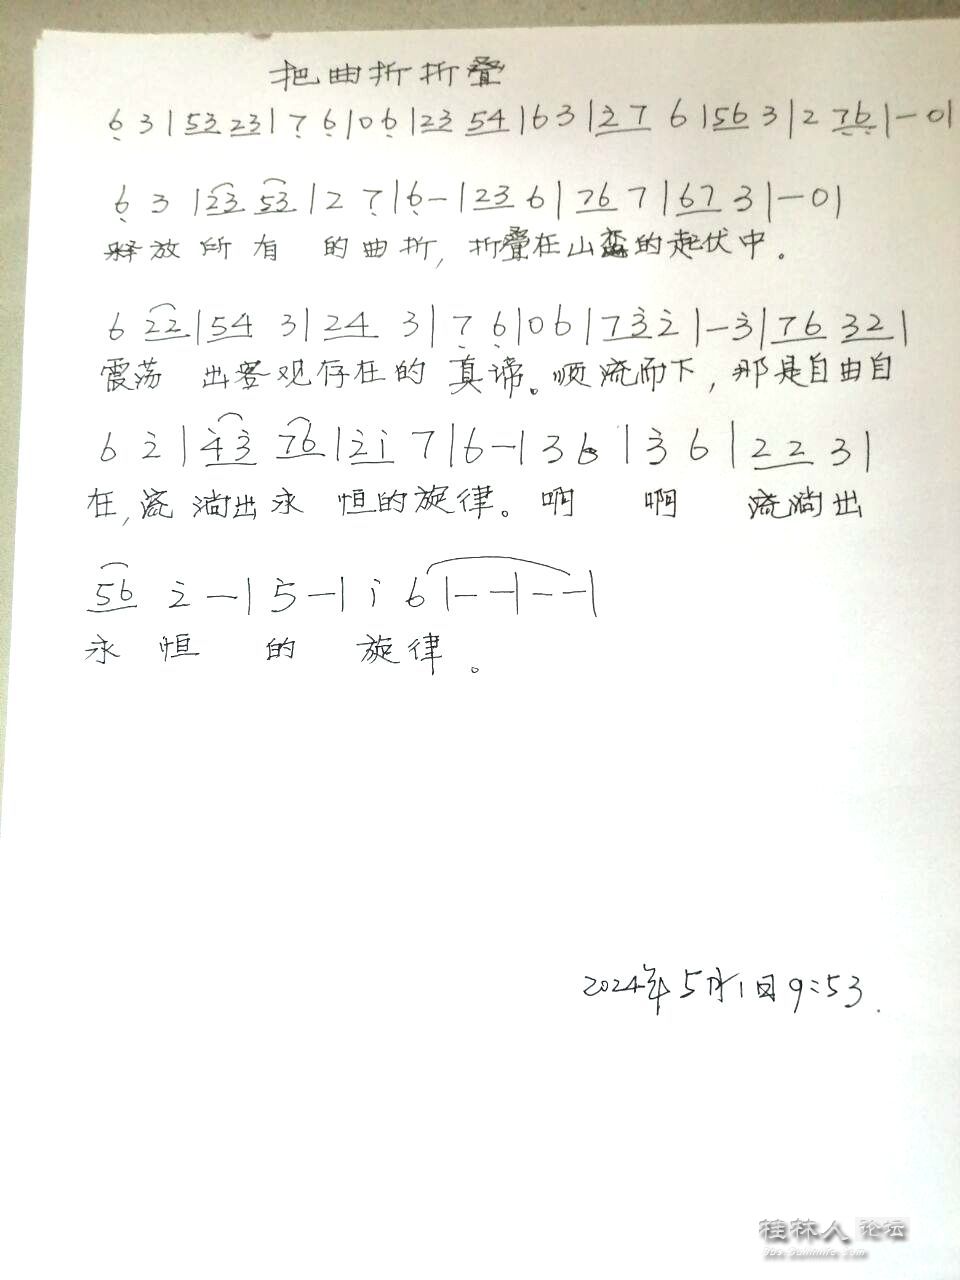 把曲折折叠
6 3 | 53 23 | 7 6 | 0 6 | 23 54 | 6 3 | 2 7 6 | 56 3 | 2 76 | - 0 |
6 3 | 23 53 | 2 7 | 6 - | 23 6 | 76 7 | 67 3 | - 0 |
释放所有 的曲折, 折叠在山峦的起伏中。
6 22 | 54 3 | 24 3 | 7 6 | 0 6 | 7 3 2 | - 3 | 76 32 |
震荡 出客观存在的 真谛。顺流而下, 那是自由自
6 2 | 43 76 | 2i 7 | 6 - | 3 6 | 3 6 | 2 2 3 |
在, 流淌出永 恒的旋律。啊 啊 流淌出
56 2 - | 5 - | i 6 | - - | - - |
永 恒 的 旋律。
2024年5月1日9:53.
桂林人论坛
bbs.guilinlife.com